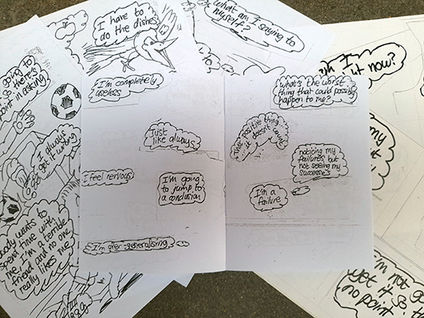 I have to
do the dishes
what am I saying to
myself?
going
to the
point in asking
I always
get it wrong
I'm completely
useless
what's the worst
thing that could possibly
happen to me?
Just
like always
positive thing
it doesn't count
I feel nervous
I'm going
to jump to
a conclusion
noticing my
failures but
not seeing my
successes
I'm a
failure
I'm over-generalising
wants to
I'm a terrible
friend and no one
really likes me
it now?
I'm not
get it so
no point